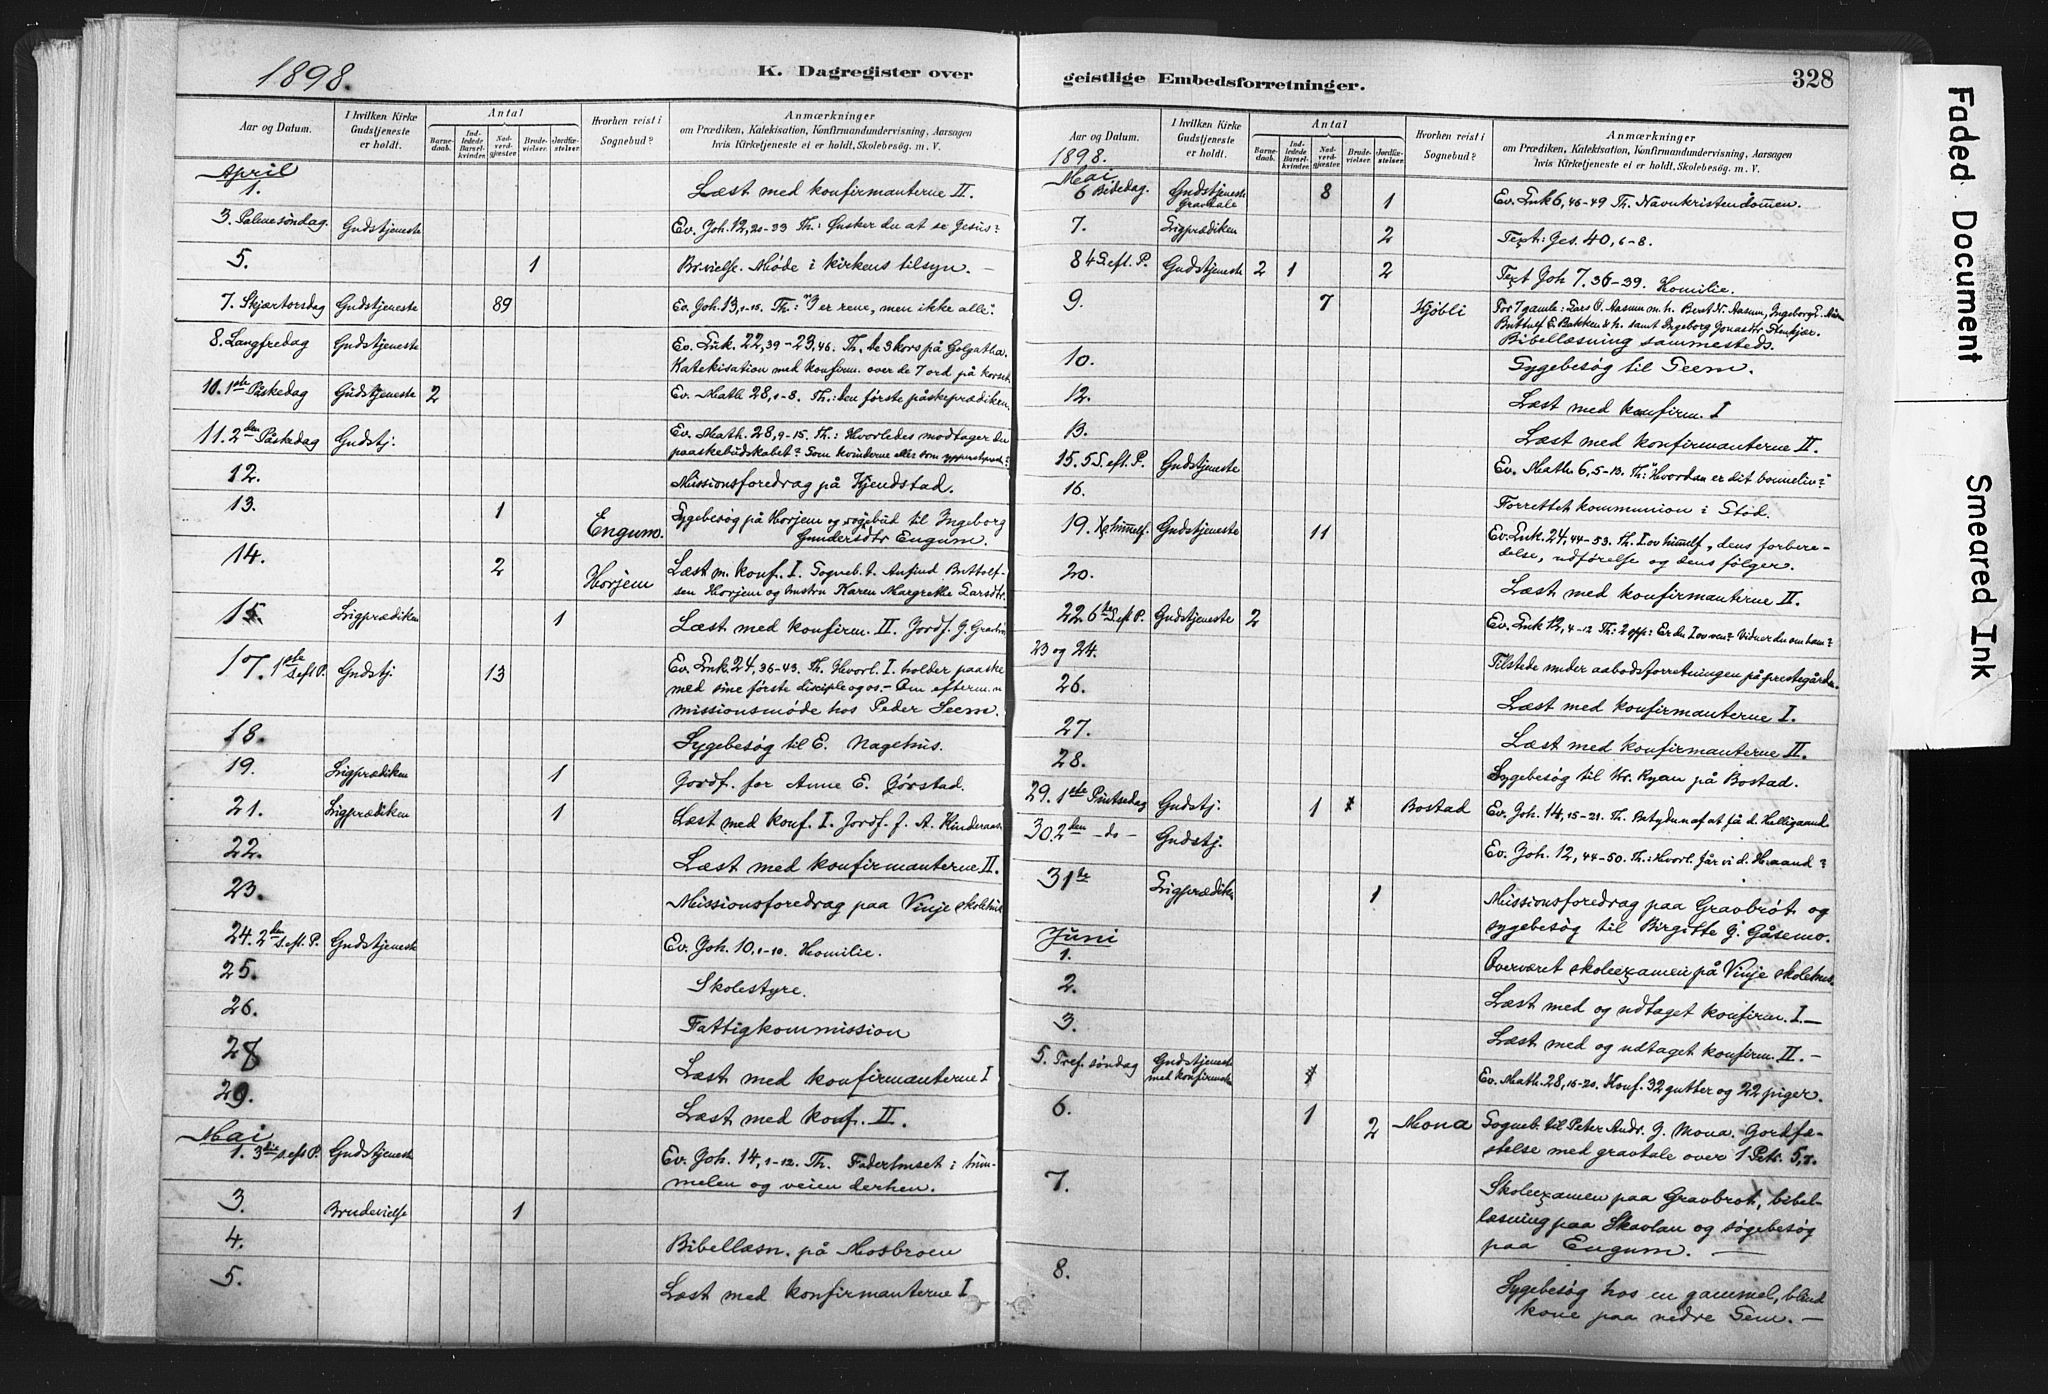 1898.
K. Dagregister over
Aar og Datum.
I hvilken Kirke Gudstjeneste er holdt.
Antal
Barne-daab.
Ind-ledede Barsel-kvinder.
Nad-verd-gjæster.
Brude-vielser.
Jordfæ-stelser.
Hvorhen reist i Sognebud?
Anmærkninger
om Prædiken, Katekisation, Konfirmandundervisning, Aarsagen
hvis Kirketjeneste ei er holdt, Skolebesøg. m. V.
April
1. Læst med konfirmanterne II.
3. Palmesøndag. Gudstjeneste Ev. Joh. 12, 20-33 Th: Ønsker du at se Jesus?
5. 1 Br.vielse. Møde i kirkens tilsyn. –
7. Skjærtorsdag Gudstjeneste 89 Ev. Joh. 13, 1-15. Th: "I er rene, men ikke alle".
8. Langfredag Gudstjeneste Ev. Luk. 22, 39 – 23, 46. Th. De 3 kors på Golgatha.
Katekisation med konfirm. over de 7 ord på korset.
10. 1ste Påskedag Gudstjeneste 2 Ev. Math 28, 1-8. Th: Den første påskeprædiken.
11. 2den Påskedag Gudstj: Ev. Math. 28, 9-15. Th: Hvorledes modtager du
paaskebudskabet? Som kvinderne eller som ypperstepræst.?
12. Missionsforedrag på Kjendstad.
13. 1 Engum. Sygebesøg på Horjem og sogebud til Ingeborg
Gundersdtr Engum.
14. 2 Horjem Læst m. konf. I. Sogneb. t. Anfind Buttolf-
sen Horjem og hustru Karen Margrethe Larsdtr.
15. Ligprædiken 1 Læst med konfirm. II. Jordf. G.
17. 1ste S. eft P. Gudstj. 13 Ev. Luk. 24, 36-43. Th. Hvorl. I. holder paaske
med sine første disciple og os. – Om efterm.
missionsmøde hos Peder Seem.
18. Sygebesøg til E. Nagehus.
19. Ligprædiken 1 Jordf. for Anne E. Gørstad.
21. Ligprædiken 1 Læst med konf. I. Jordf. f. A.
22. Læst med konfirmanterne II.
23. Missionsforedrag paa Vinje skolehus
24. 2den S. eft. P. Gudstjeneste Ev. Joh. 10, 1-10. Homilie.
25. Skolestyre.
26. Fattigkommission
28 Læst med konfirmanterne I
29. Læst med konf. II.
Mai
1. 3die S. eft P. Gudstjeneste Ev. Joh. 14, 1-12. Th. Faderhuset i him-
melen og veien derhen.
3. Brudevielse 1
4. Bibellæsn. på Mosbroen
5. Læst med konfirmanterne I
geistlige Embedsforretninger.
328
Aar og Datum.
I hvilken Kirke Gudstjeneste er holdt.
Antal
Barne-daab.
Ind-ledede Barsel-kvinder.
Nad-verd-gjæster.
Brude-vielser.
Jordfæ-stelser.
Hvorhen reist i Sognebud?
Anmærkninger
om Prædiken, Katekisation, Konfirmandundervisning, Aarsagen
hvis Kirketjeneste ei er holdt, Skolebesøg. m. V.
1898.
Mai
6 Bededag. Gudstjeneste Gravtale 8 1 Ev. Luk 6, 46-49 Th. Navnkristendommen.
7. Ligprædiken 2 Text: Jes. 40, 6-8.
8 4 S. eft. P. Gudstjeneste 2 1 2 Text Joh 7. 36-39. Homilie.
9 7 Kjøbli For 7 gamle: Lars O. Aasum m. h. Beret N. Aasum, Ingeborg L.
Buttolf E. Bakken & h. samt Ingeborg Jonasdtr Stenkjær.
Bibellæsning sammesteds.
10. Sygebesøg til Seem.
12. Læst med konfirm. I
13. Læst med konfirmanterne II.
15. 5 S. eft. P. Gudstjeneste Ev. Math 6, 5-13. Th: "Hvordan er dit bønneliv?"
16. Forrettet kommunion i Stod.
19. Kr himmelf. Gudstjeneste 11 Ev. Luk. 24, 44-53. Th. I ov himmelf, dens forbere-
delse, udførelse og dens følger.
20. Læst med konfirmanterne II.
22. 6te S. eft P. Gudstjeneste 2 Ev. Luk 12, 4-12 Th: 2 spp: Er du I ov ven? Vidner du om ham?
23 og 24. Tilstede under aabodsforretningen på prestegården.
26. Læst med konfirmanterne I.
27. Læst med konfirmanterne II.
28. Sygebesøg til Kr. Ryan på Bostad.
29. 1ste Pintsedag Gudstj: 1 Bostad Ev. Joh. 14, 15-21. Th. Betydn af at få d. Helligaand
30. 2den – do – Gudstj. Ev. Joh. 12, 44-50. Th: Hvorl. får vi d. H. aand?
31te Ligprædiken 1 Missionsforedrag paa Gravbrøt og
sygebesøg til Birgitte J. Gåsemo.
Juni
1. Overværet skoleexamen på Vinje skolehus.
2. Læst med og udtaget konfirm. I. –
3. Læst med og udtaget konfirm. II. –
5. Tref. søndag Gudstjeneste med konfirmation Ev. Math. 28, 16-20. Konf. 32 gutter og 22 piger.
6. 1 2 Mona Sogneb. til Peter Andr. J. Mona. Jordfæ-
stelse med gravtale over 1 Petr. 5, 7.
7. Skoleexamen paa Gravbrøt, bibel-
læsning paa Skavlan og søgebesøg
paa Engum. –
8. Sygebesøg hos en gammel, blind
kone paa nedre Sem. –
Faded Document
Smeared Ink